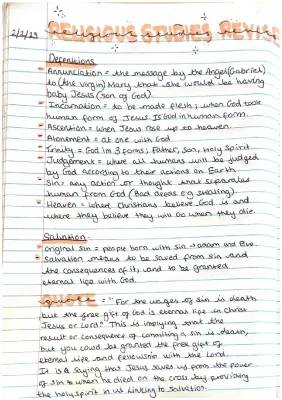 2/2/23 Religious studies
Definitions
Annunciation = the message by the Angel (Gabriel)
to (the virgin) Mary that she would be having
baby Jesus (son of God).
Incarnation = to be made flesh; when God took
human form of Jesus. God in human form.
Ascention = when Jesus rose up to heaven.
Atonement = at one with God
Trinity = God in 3 forms; Father, Son, Holy Spirit
Judgement = where all humans will be judged
by God according to their actions on Earth
Sin = any action or thought that separates
human from God (Bad areas eg stealing)
Heaven = where Christians believe God is and
where they believe they will go when they die.
Salvation.
original sin = people born with sin → adam and Eve.
Salvation means to be saved from sin and
the consequences of it, and to be granted
eternal life with God.
quote = "For the wages of sin is death
but the free gift of God is eternal life in Christ
Jesus or Lord." This is implying that the
result or consequence of commiting a sin is death,
but you could be granted the free gift of
eternal life and fellowship with the Lord.
It is a saying that Jesus saves us from the power
of sin when he died on the cross by providing
the holy spirit in us linking to salvation.